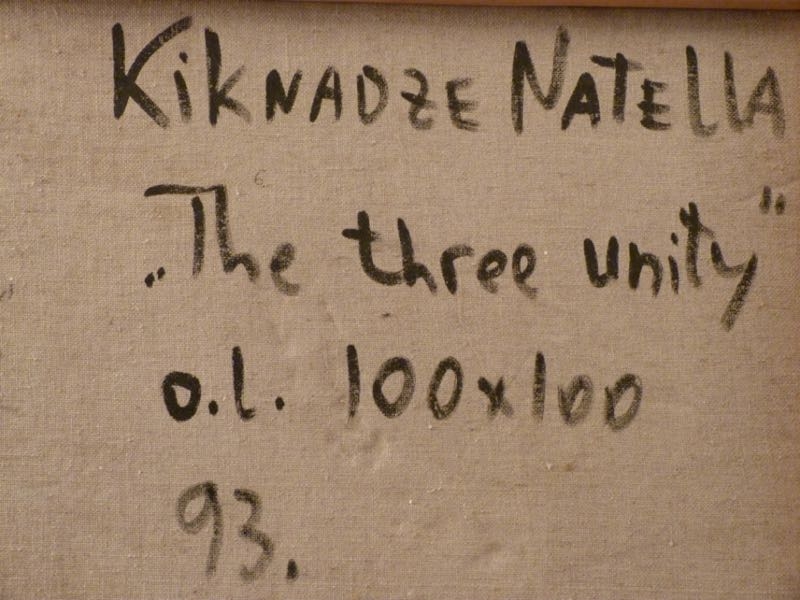 KiKNADZE NATELLA
„The three unity"
o.l. 100x100
93.